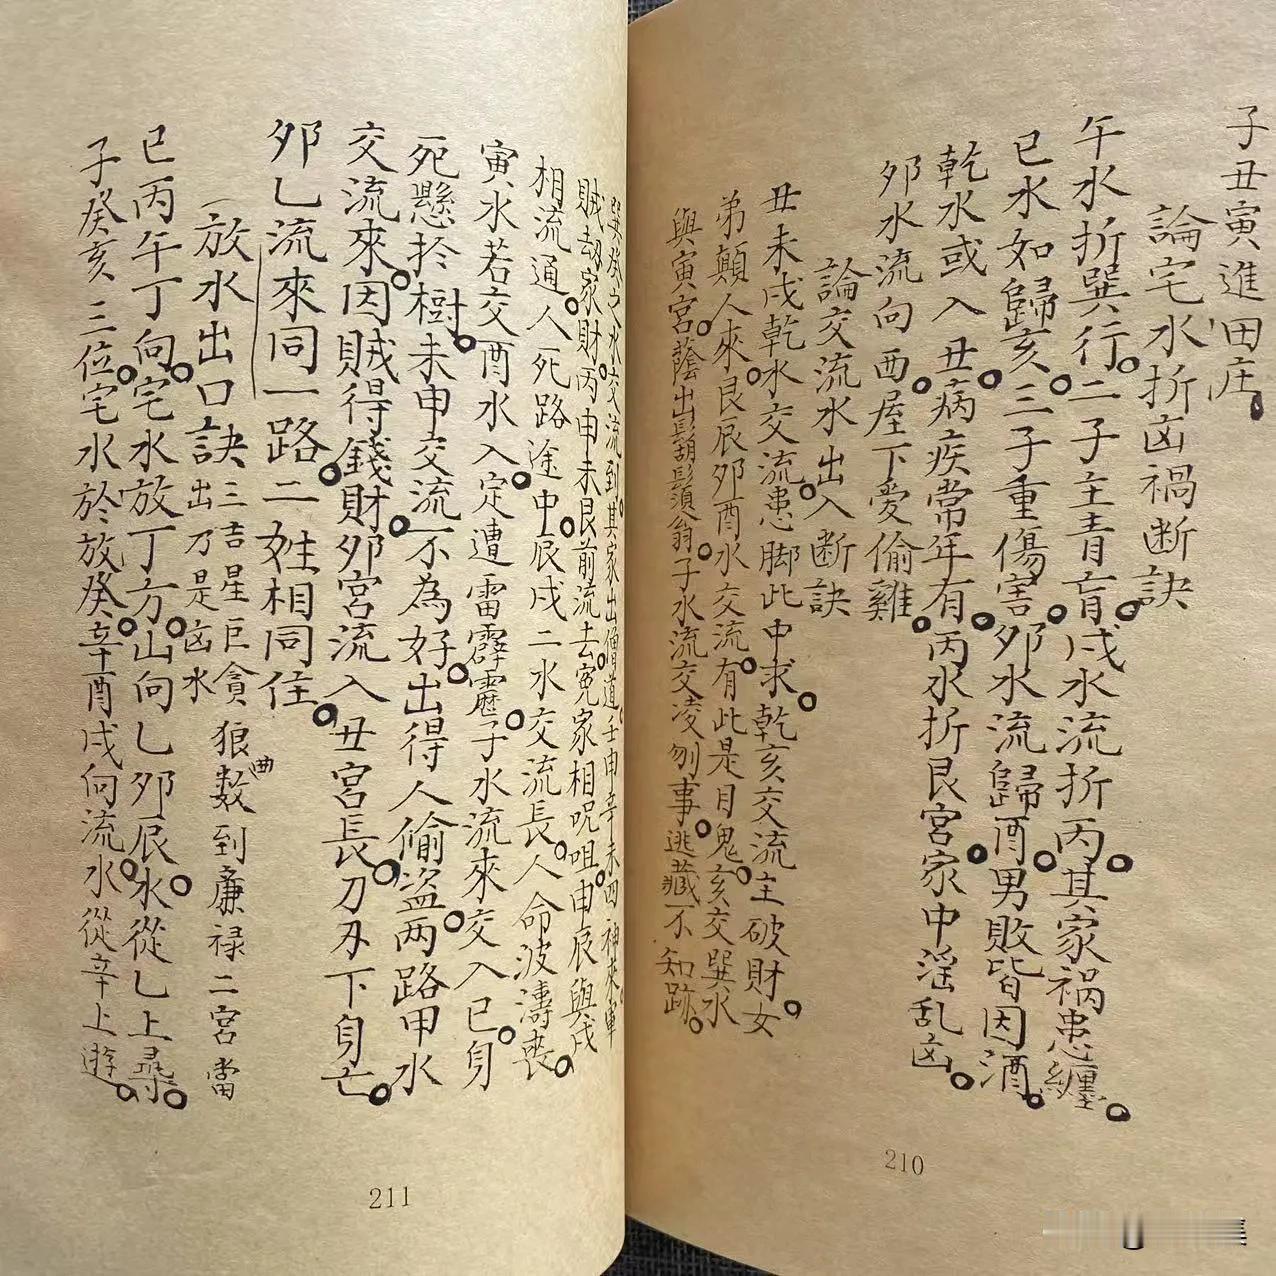 子丑寅進田庄。
論宅水折凶禍断訣
午水折巽行。二子主青盲。戌水流折丙。其家祸患纏。
巳水如歸亥。三子重傷害。夘水流歸酉。男敗皆因酒。
乾水或入丑。病疾常年有。丙水折艮宮。家中淫乱凶。
夘水流向西。屋下愛偷雞。
論交流水出入断訣
丑未戌乾水交流。患脚此中求。乾亥交流主破財。女
弟顛人來。艮辰夘酉水交流。有此是目鬼。亥交巽水
與寅宮。蔭出鬍鬚須翁。子水流交凌刎事。逃藏不知跡。
210
巽癸之水交流到。其家出僧道。壬申辛未四神來
賊劫家財。丙申未艮前流去。冤家相呪咀。申辰與戌
相流通。人死路途中。辰戌二水交流長。人命波濤喪。
寅水若交酉水入。定遭雷霹靂。子水流來交入巳。身
死懸扵樹。未申交流不為好。出得人偷盗。两路甲水
交流來。因賊得錢財。夘宮流入丑宮長。刀刃下身亡。
夘乙流來同一路。二姓相同住。
放水出口訣 三吉星巨貪狼数到廉禄二宮當
曲
出乃是凶水
巳丙午丁向。宅水放丁方。山向乙夘辰。水從乙上尋。
子癸亥三位。宅水於放癸。辛酉戌向流水。從辛上遊。
211